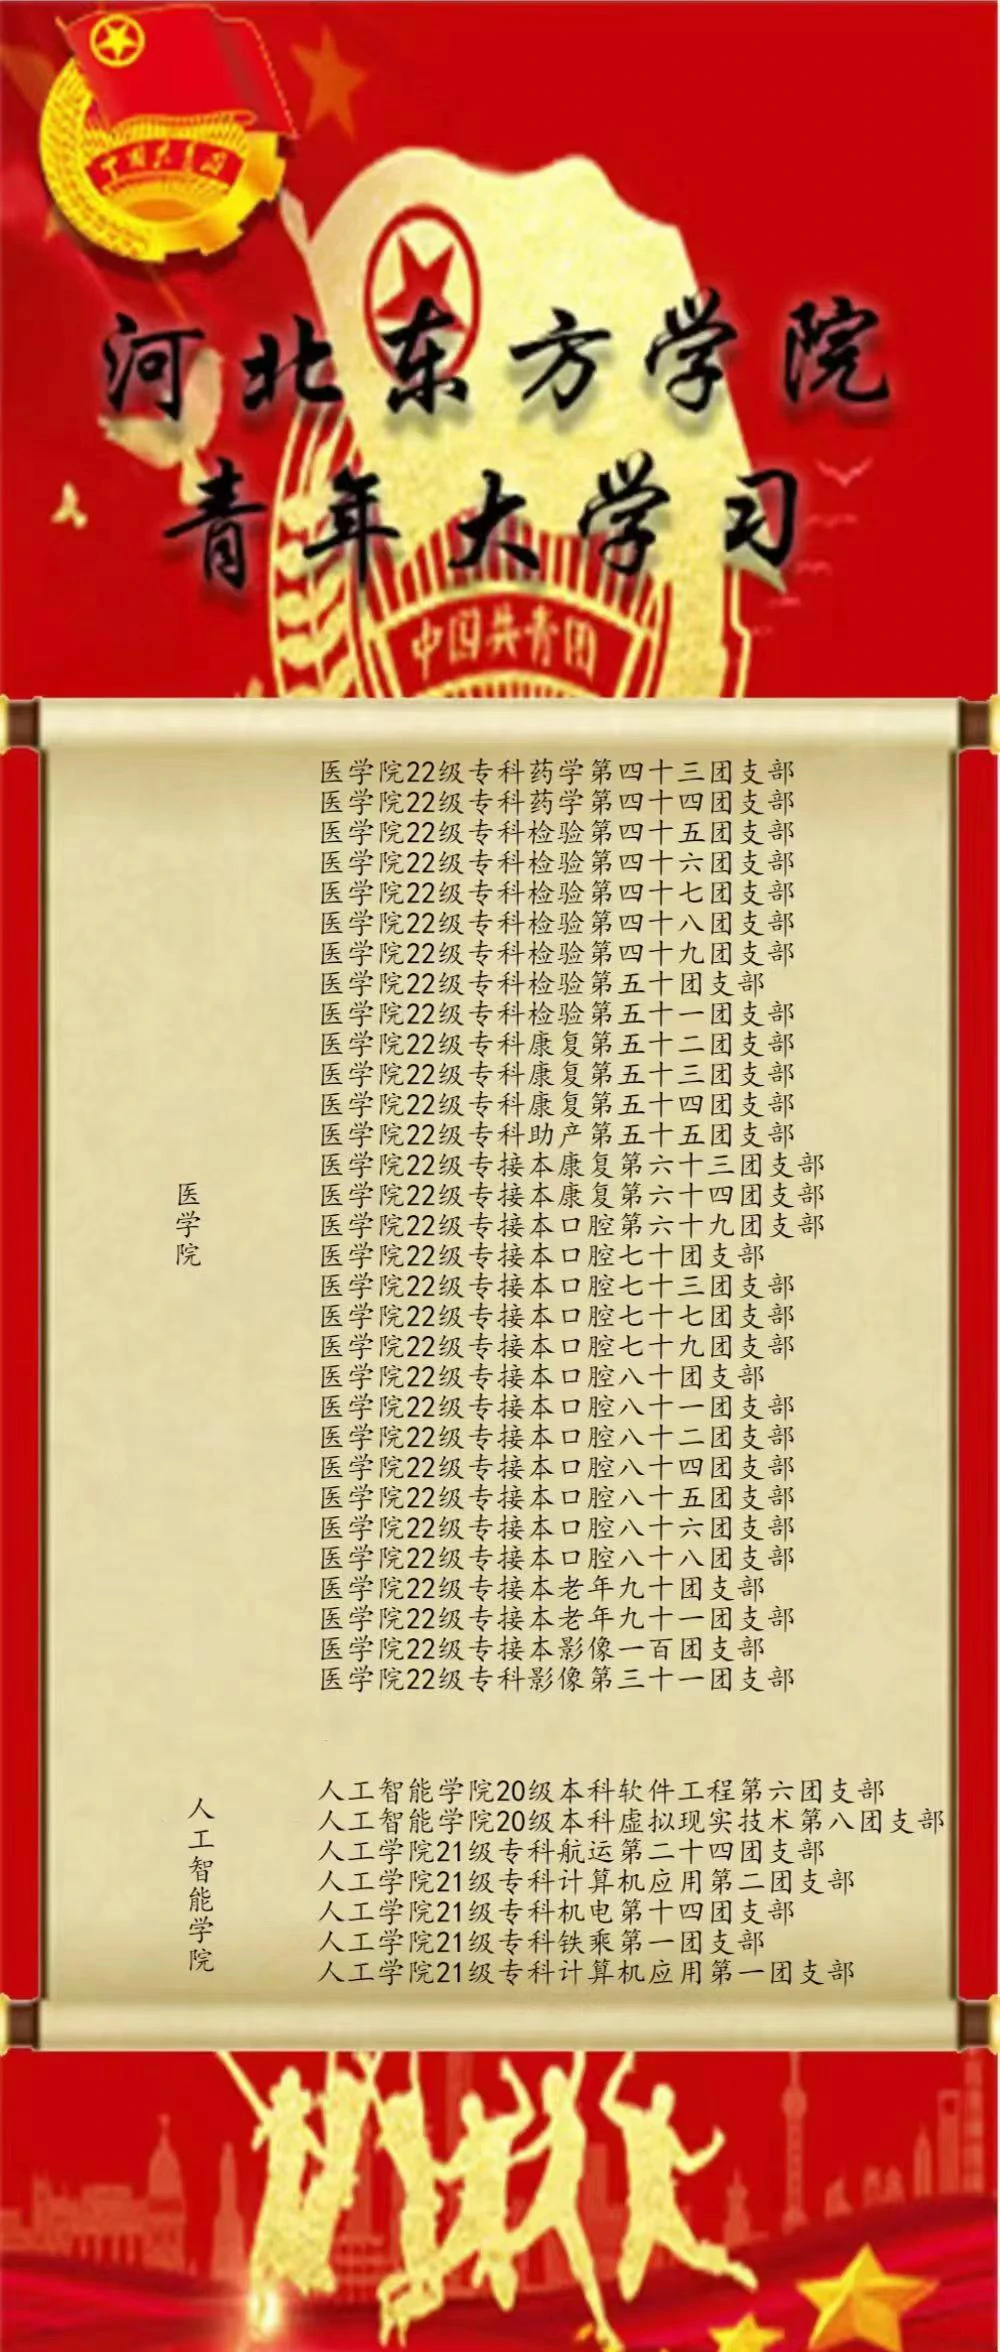 中国共青团
河北东方学院
青年大学习
中国共青团
医学院
医学院22级专科药学第四十三团支部
医学院22级专科药学第四十四团支部
医学院22级专科检验第四十五团支部
医学院22级专科检验第四十六团支部
医学院22级专科检验第四十七团支部
医学院22级专科检验第四十八团支部
医学院22级专科检验第四十九团支部
医学院22级专科检验第五十团支部
医学院22级专科检验第五十一团支部
医学院22级专科康复第五十二团支部
医学院22级专科康复第五十三团支部
医学院22级专科康复第五十四团支部
医学院22级专科助产第五十五团支部
医学院22级专接本康复第六十三团支部
医学院22级专接本康复第六十四团支部
医学院22级专接本口腔第六十九团支部
医学院22级专接本口腔七十团支部
医学院22级专接本口腔七十三团支部
医学院22级专接本口腔七十七团支部
医学院22级专接本口腔七十九团支部
医学院22级专接本口腔八十团支部
医学院22级专接本口腔八十一团支部
医学院22级专接本口腔八十二团支部
医学院22级专接本口腔八十四团支部
医学院22级专接本口腔八十五团支部
医学院22级专接本口腔八十六团支部
医学院22级专接本口腔八十八团支部
医学院22级专接本老年九十团支部
医学院22级专接本老年九十一团支部
医学院22级专接本影像一百团支部
医学院22级专科影像第三十一团支部
人工智能学院
人工智能学院20级本科软件工程第六团支部
人工智能学院20级本科虚拟现实技术第八团支部
人工学院21级专科航运第二十四团支部
人工学院21级专科计算机应用第二团支部
人工学院21级专科机电第十四团支部
人工学院21级专科铁乘第一团支部
人工学院21级专科计算机应用第一团支部